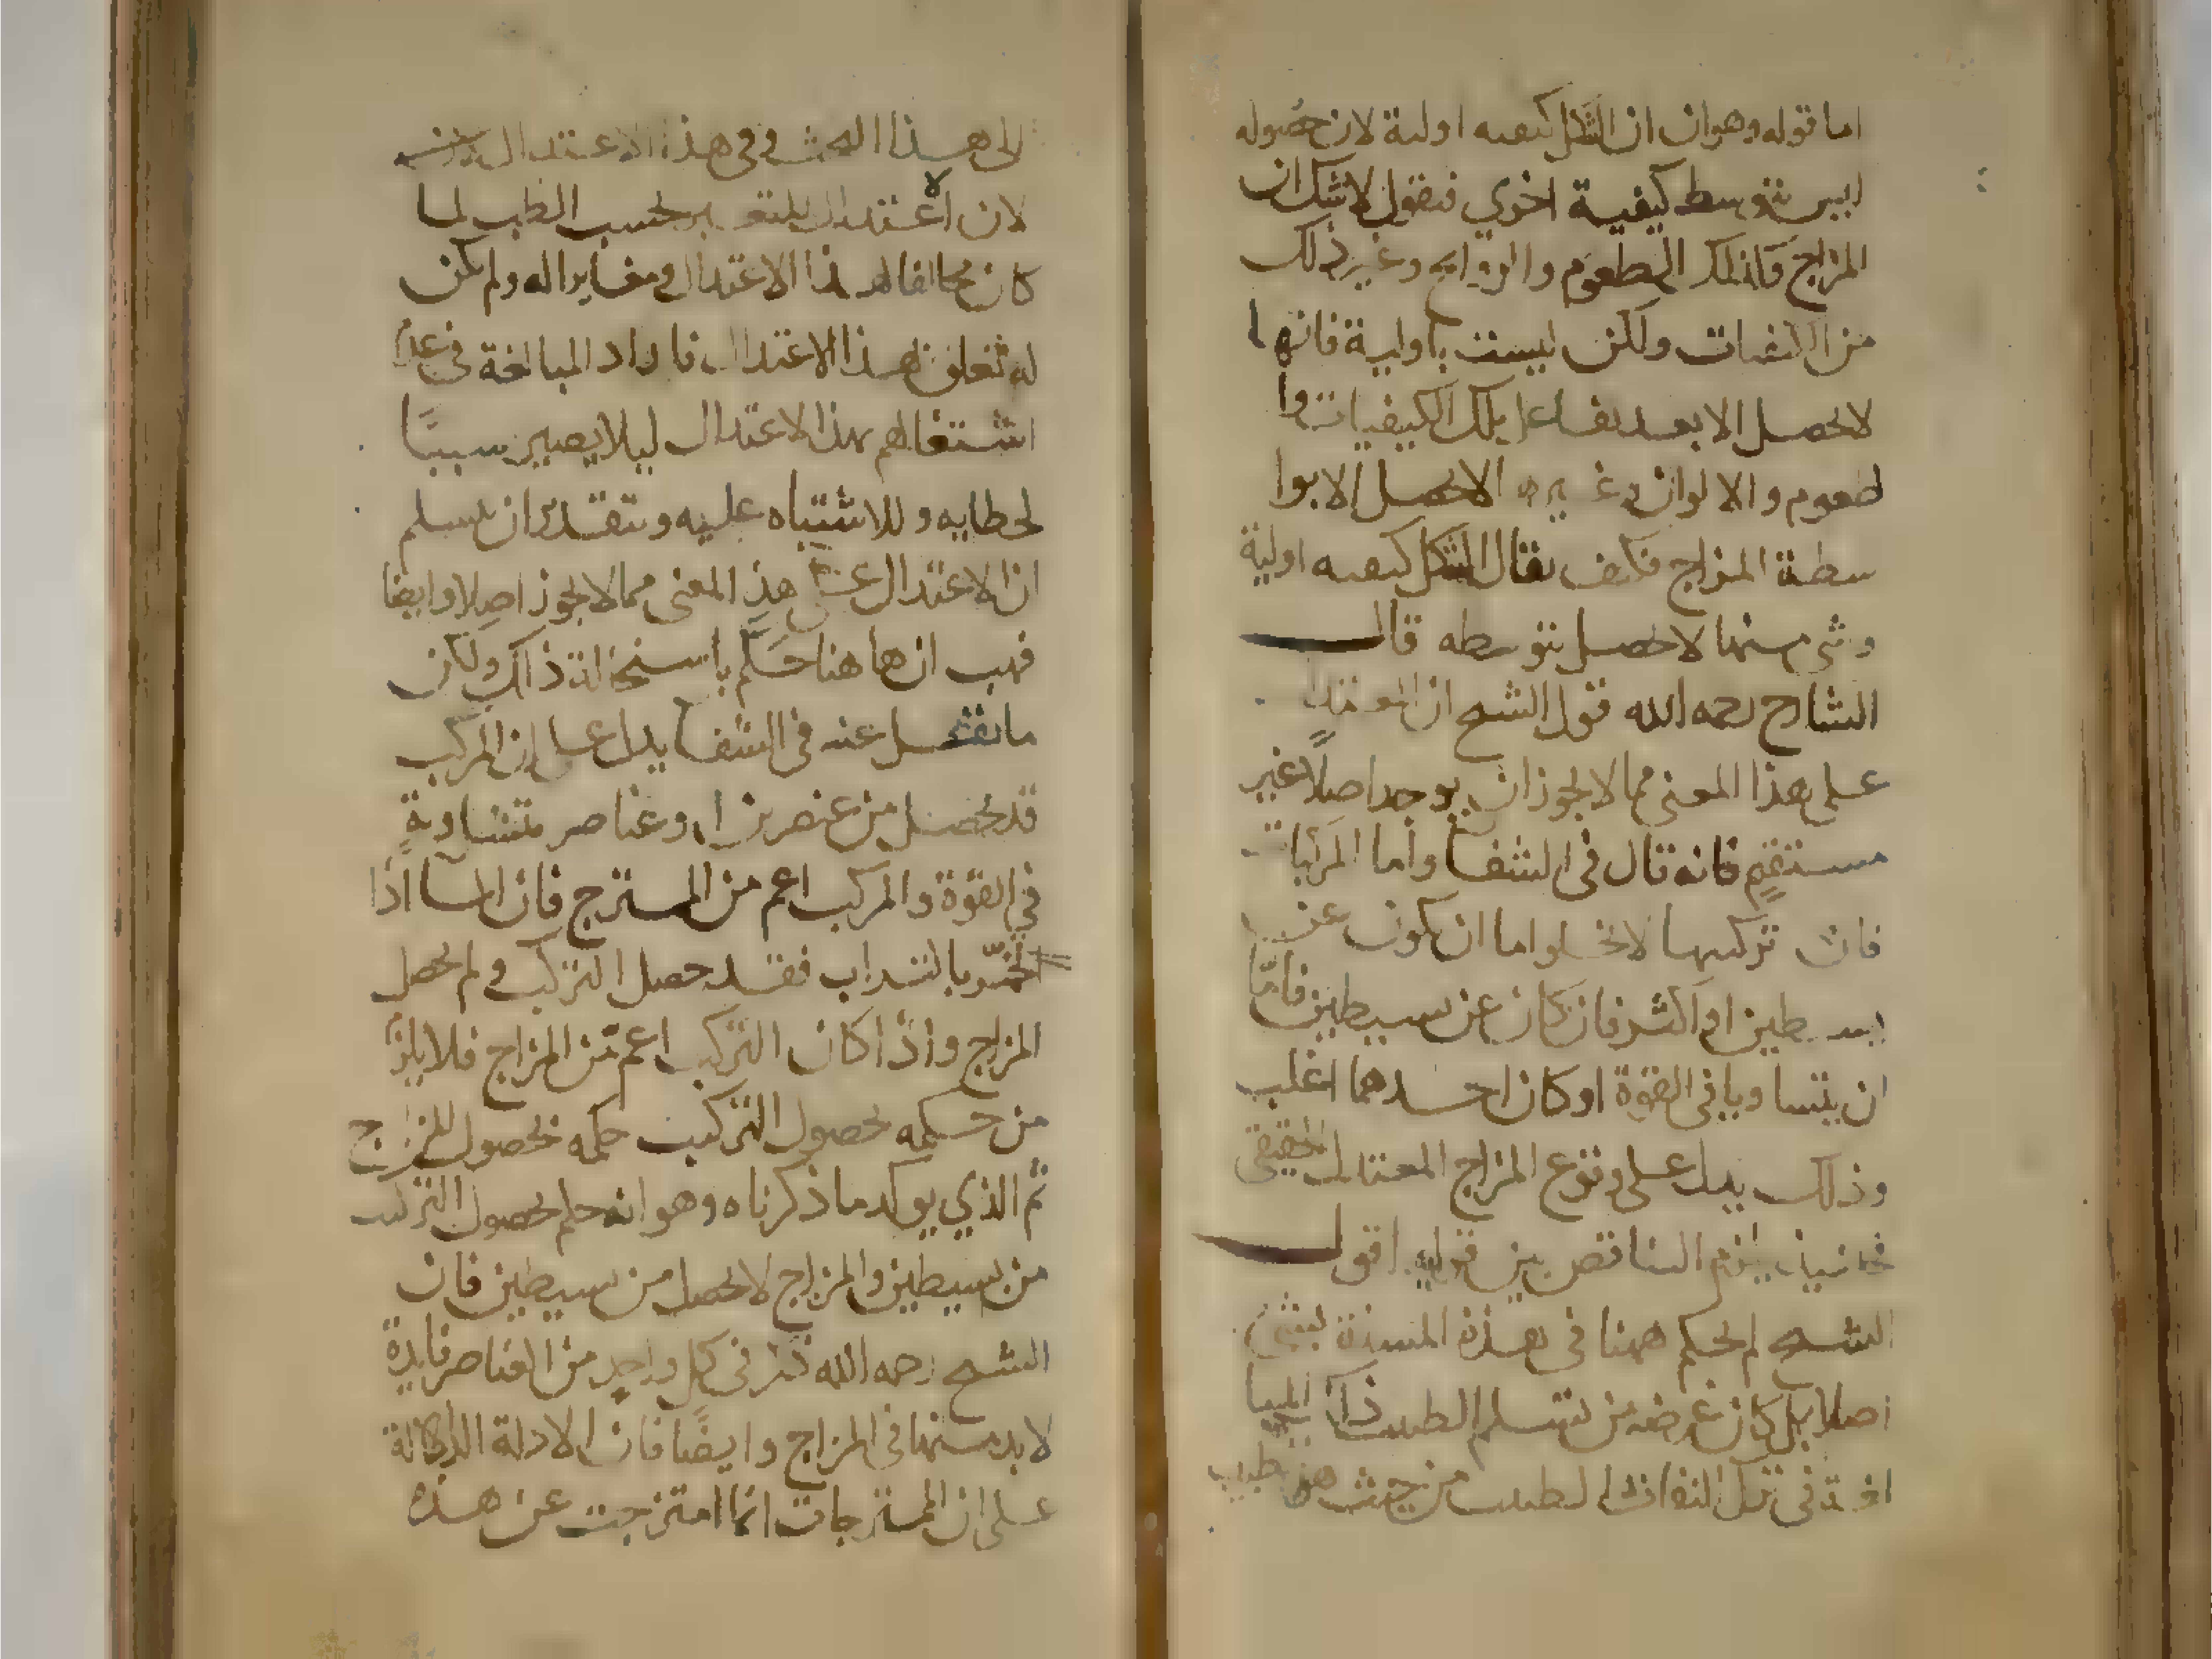 اما قوله وهو ان الشكل كيفيه اولية لان حصوله
ليس بتوسط كيفية اخري فنقول لا شك ان
المزاج فانك الطعوم والروايح وغير ذلك
من الكيفيات ولكن ليست باولية فانها
لا يحصل الا بعد تفاعل تلك الكيفيات وا
لطعوم والالوان وغيرها لا يحصل الا بوا
سطة المزاج فكيف يقال الشكل كيفيه اولية
وشي منها لا يحصل بتوسطه قال
الشارح رحمه الله قول الشيخ ان المعتدل
علي هذا المعني مما لا يجوز ان يوجد اصلا غير
مستقيم فانه قال في الشفا واما المركبات
فان تركيبها لا يخلوا اما ان يكون عن
بسيطين او اكثر فان كان عن بسيطين فاما
ان يتساويا في القوة او كان احدهما اغلب
وذلك يدل علي وقوع المزاج المعتدل الحقيقي
فحينيذ يلزم التناقض بين قوليه اقول
الشيخ لم يحكم ههنا في هذه المسئلة بشي
اصلا بل كان غرضه من تسلم الطبيب ذاك
في ترك التفات الطبيب من حيث هو طبيب
الى هذا البحث وفي هذا الاعتدال
لان الاعتدال المعتبر بحسب الطب لما
كان مخالفا لهذا الاعتدال ومغايرا له ولم يكن
له تعلق بهذا الاعتدال فاراد المبالغة في عدم
اشتغالهم بهذا الاعتدال ليلا يصير سببا
لخطايه وللاشتباه عليه وبتقدير ان يسلم
ان الاعتدال علي هذا المعني مما لا يجوز اصلا وايضا
فهب ان هاهنا حكم باستحالة ذاك ولكن
ما نقل عنه في الشفا يدل علي ان المركب
قد يحصل من عنصرين او عناصر متساوية
في القوة والمركب اعم من الممتزج فان الما اذا
بالتراب فقد حصل التركيب ولم يحصل
المزاج واذا كان التركيب اعم من المزاج فلا يلزم
من حكمه بحصول التركيب حكمه بحصول المزاج
ثم الذي يوكد ما ذكرناه وهو انه حكم بحصول التركيب
من بسيطين والمزاج لا يحصل من بسيطين فان
الشيخ رحمه الله ذكر في كل واحد من العناصر فايدة
لا بد منها في المزاج وايضا فان الادلة الدالة
علي ان الممتزجات انما امتزجت عن هذه